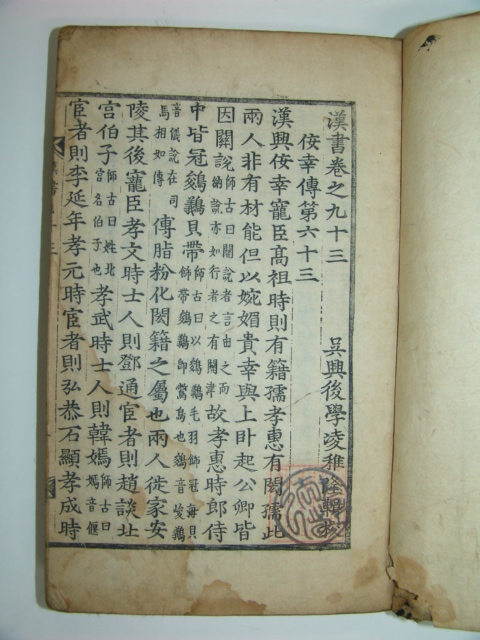 漢書卷之九十三
吳興後學凌稚隆輯校
佞幸傳第六十三
漢興佞幸寵臣高祖時則有籍孺孝惠有閎孺此
兩人非有材能但以婉媚貴幸與上卧起公卿皆
因關說師古曰關說者言由之而納說亦如行者之有關津故孝惠時郎侍
中皆冠鵔鸃貝帶師古曰以鵔鸃毛羽飾冠海貝飾帶鵔鸃即鷩鳥也鵔音峻鸃
音儀說在司馬相如傳傅脂粉化閎籍之屬也兩人徙家安
陵其後寵臣孝文時士人則鄧通宦者則趙談北
宮伯子師古曰姓北宮名伯子也孝武時士人則韓嫣師古曰嫣音偃
宦者則李延年孝元時宦者則弘恭石顯孝成時